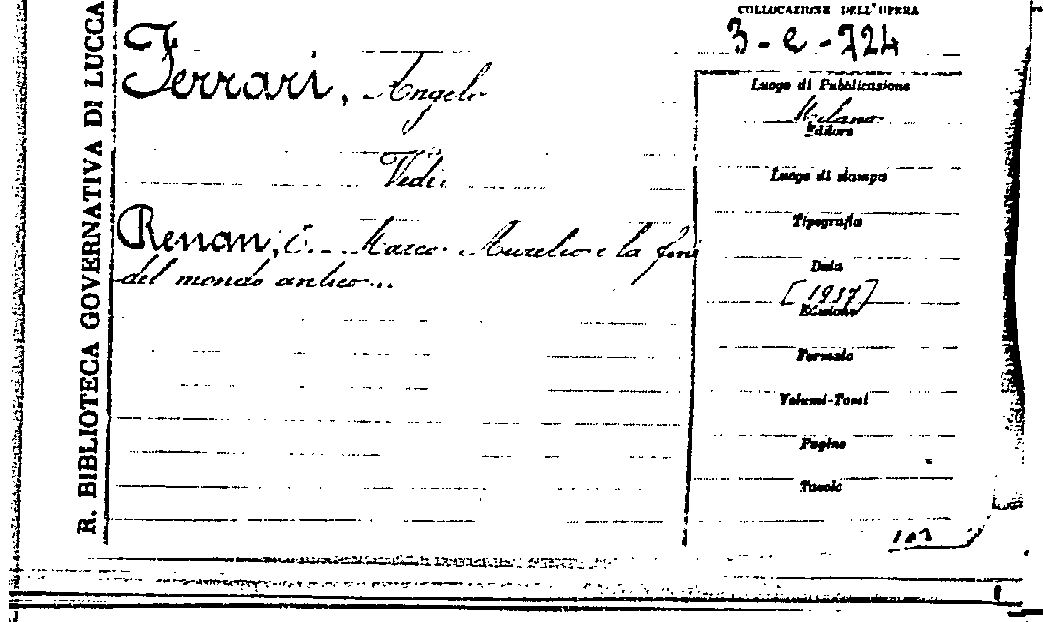 R. BIBLIOTECA GOVERNATIVA DI LUCCA
COLLOCAZIONE DELL'OPERA
3-e-724
Ferrari, Angelo
Vedi:
Renan, E. Marco Aurelio e la fine
del mondo antico...
Luogo di Pubblicazione
Milano
Editore
Luogo di stampa
Tipografia
Data
[1937]
Edizione
Formato
Volumi-Tomi
Pagine
Tavole
103